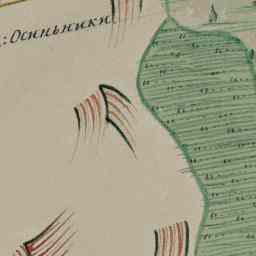 : Осиньники